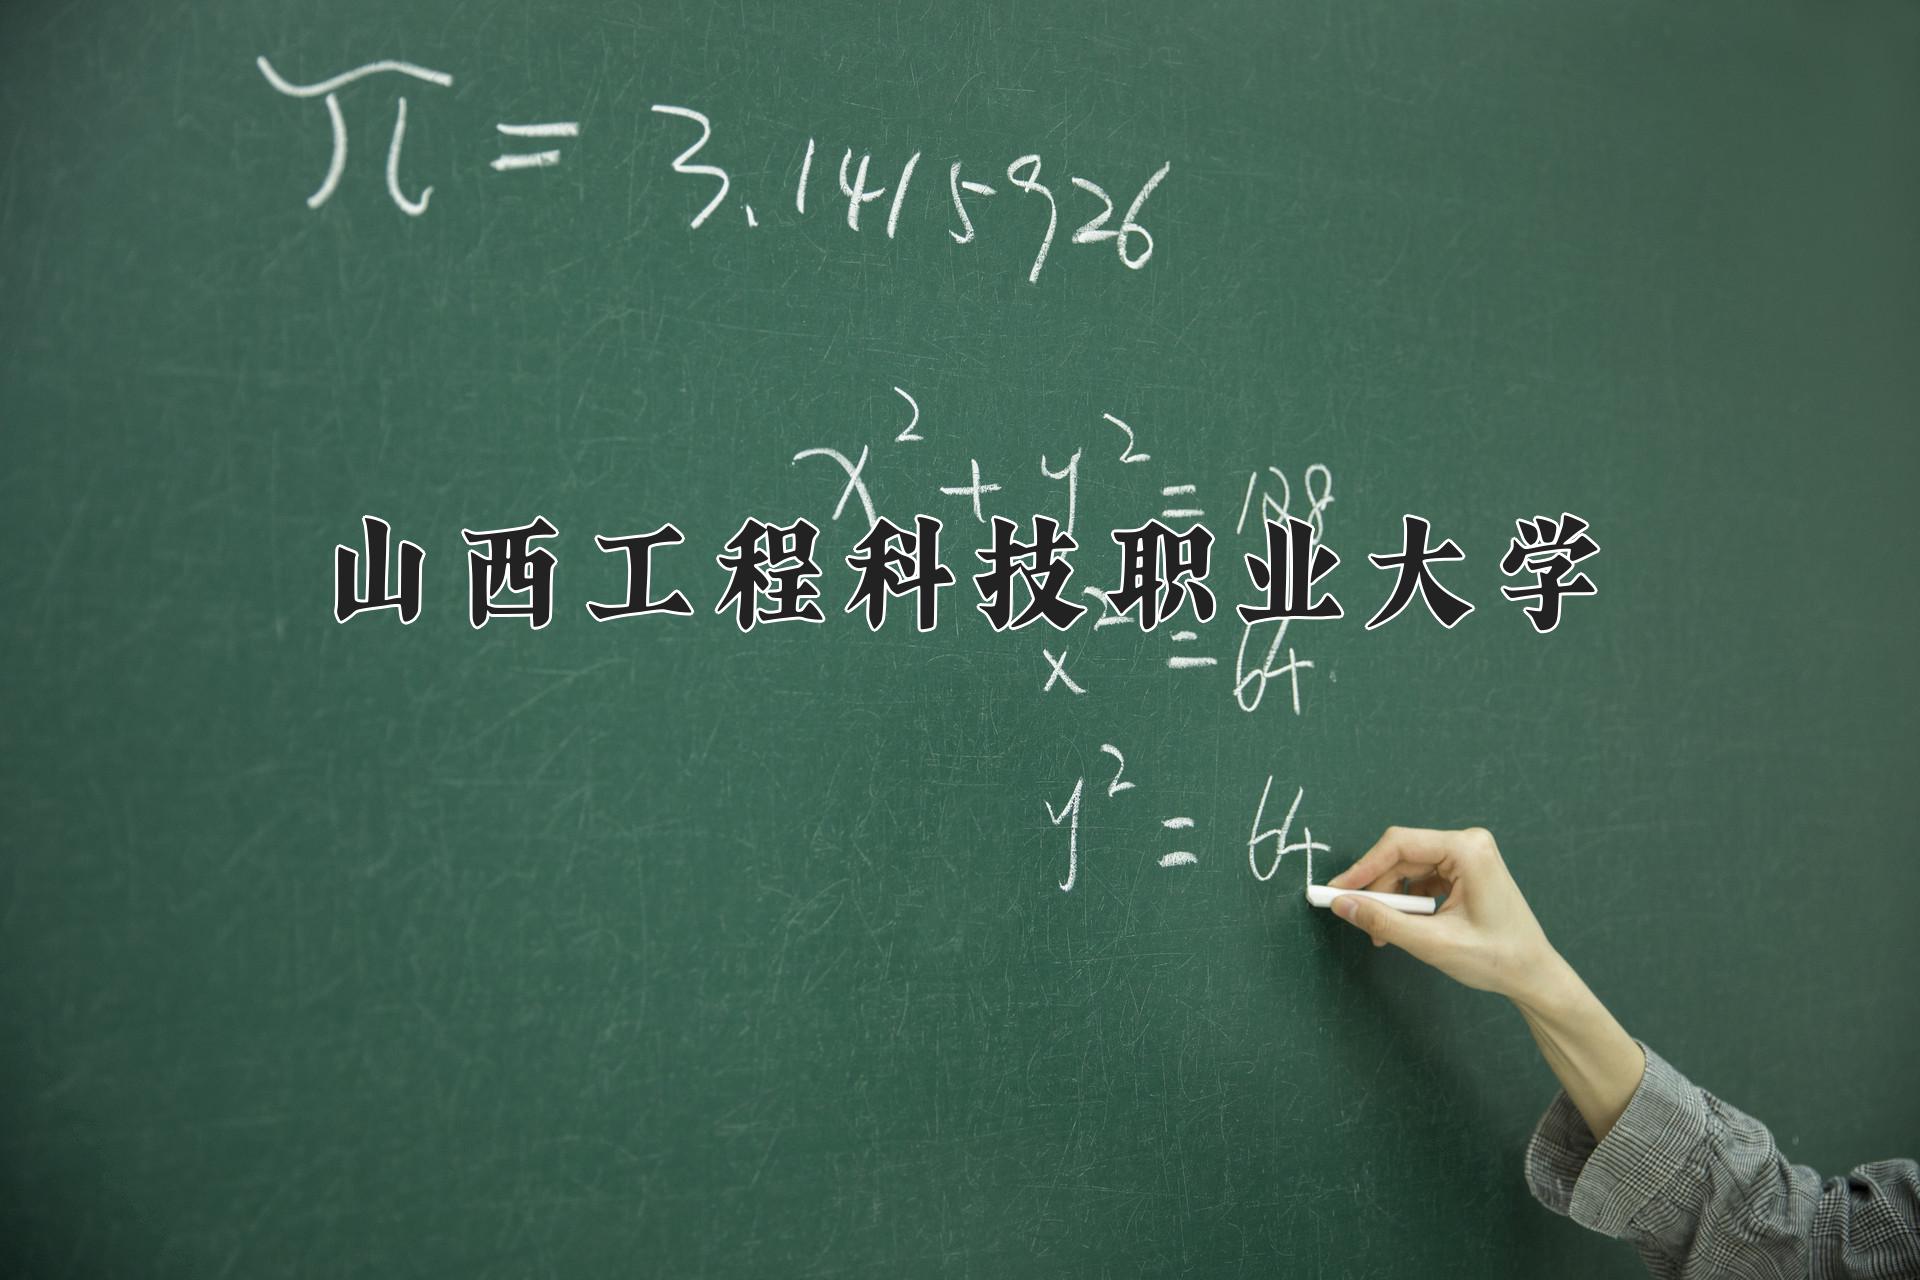 π = 3.1415926
x² + y² = 128
山西工程科技职业大学
x² = 64
y² = 64